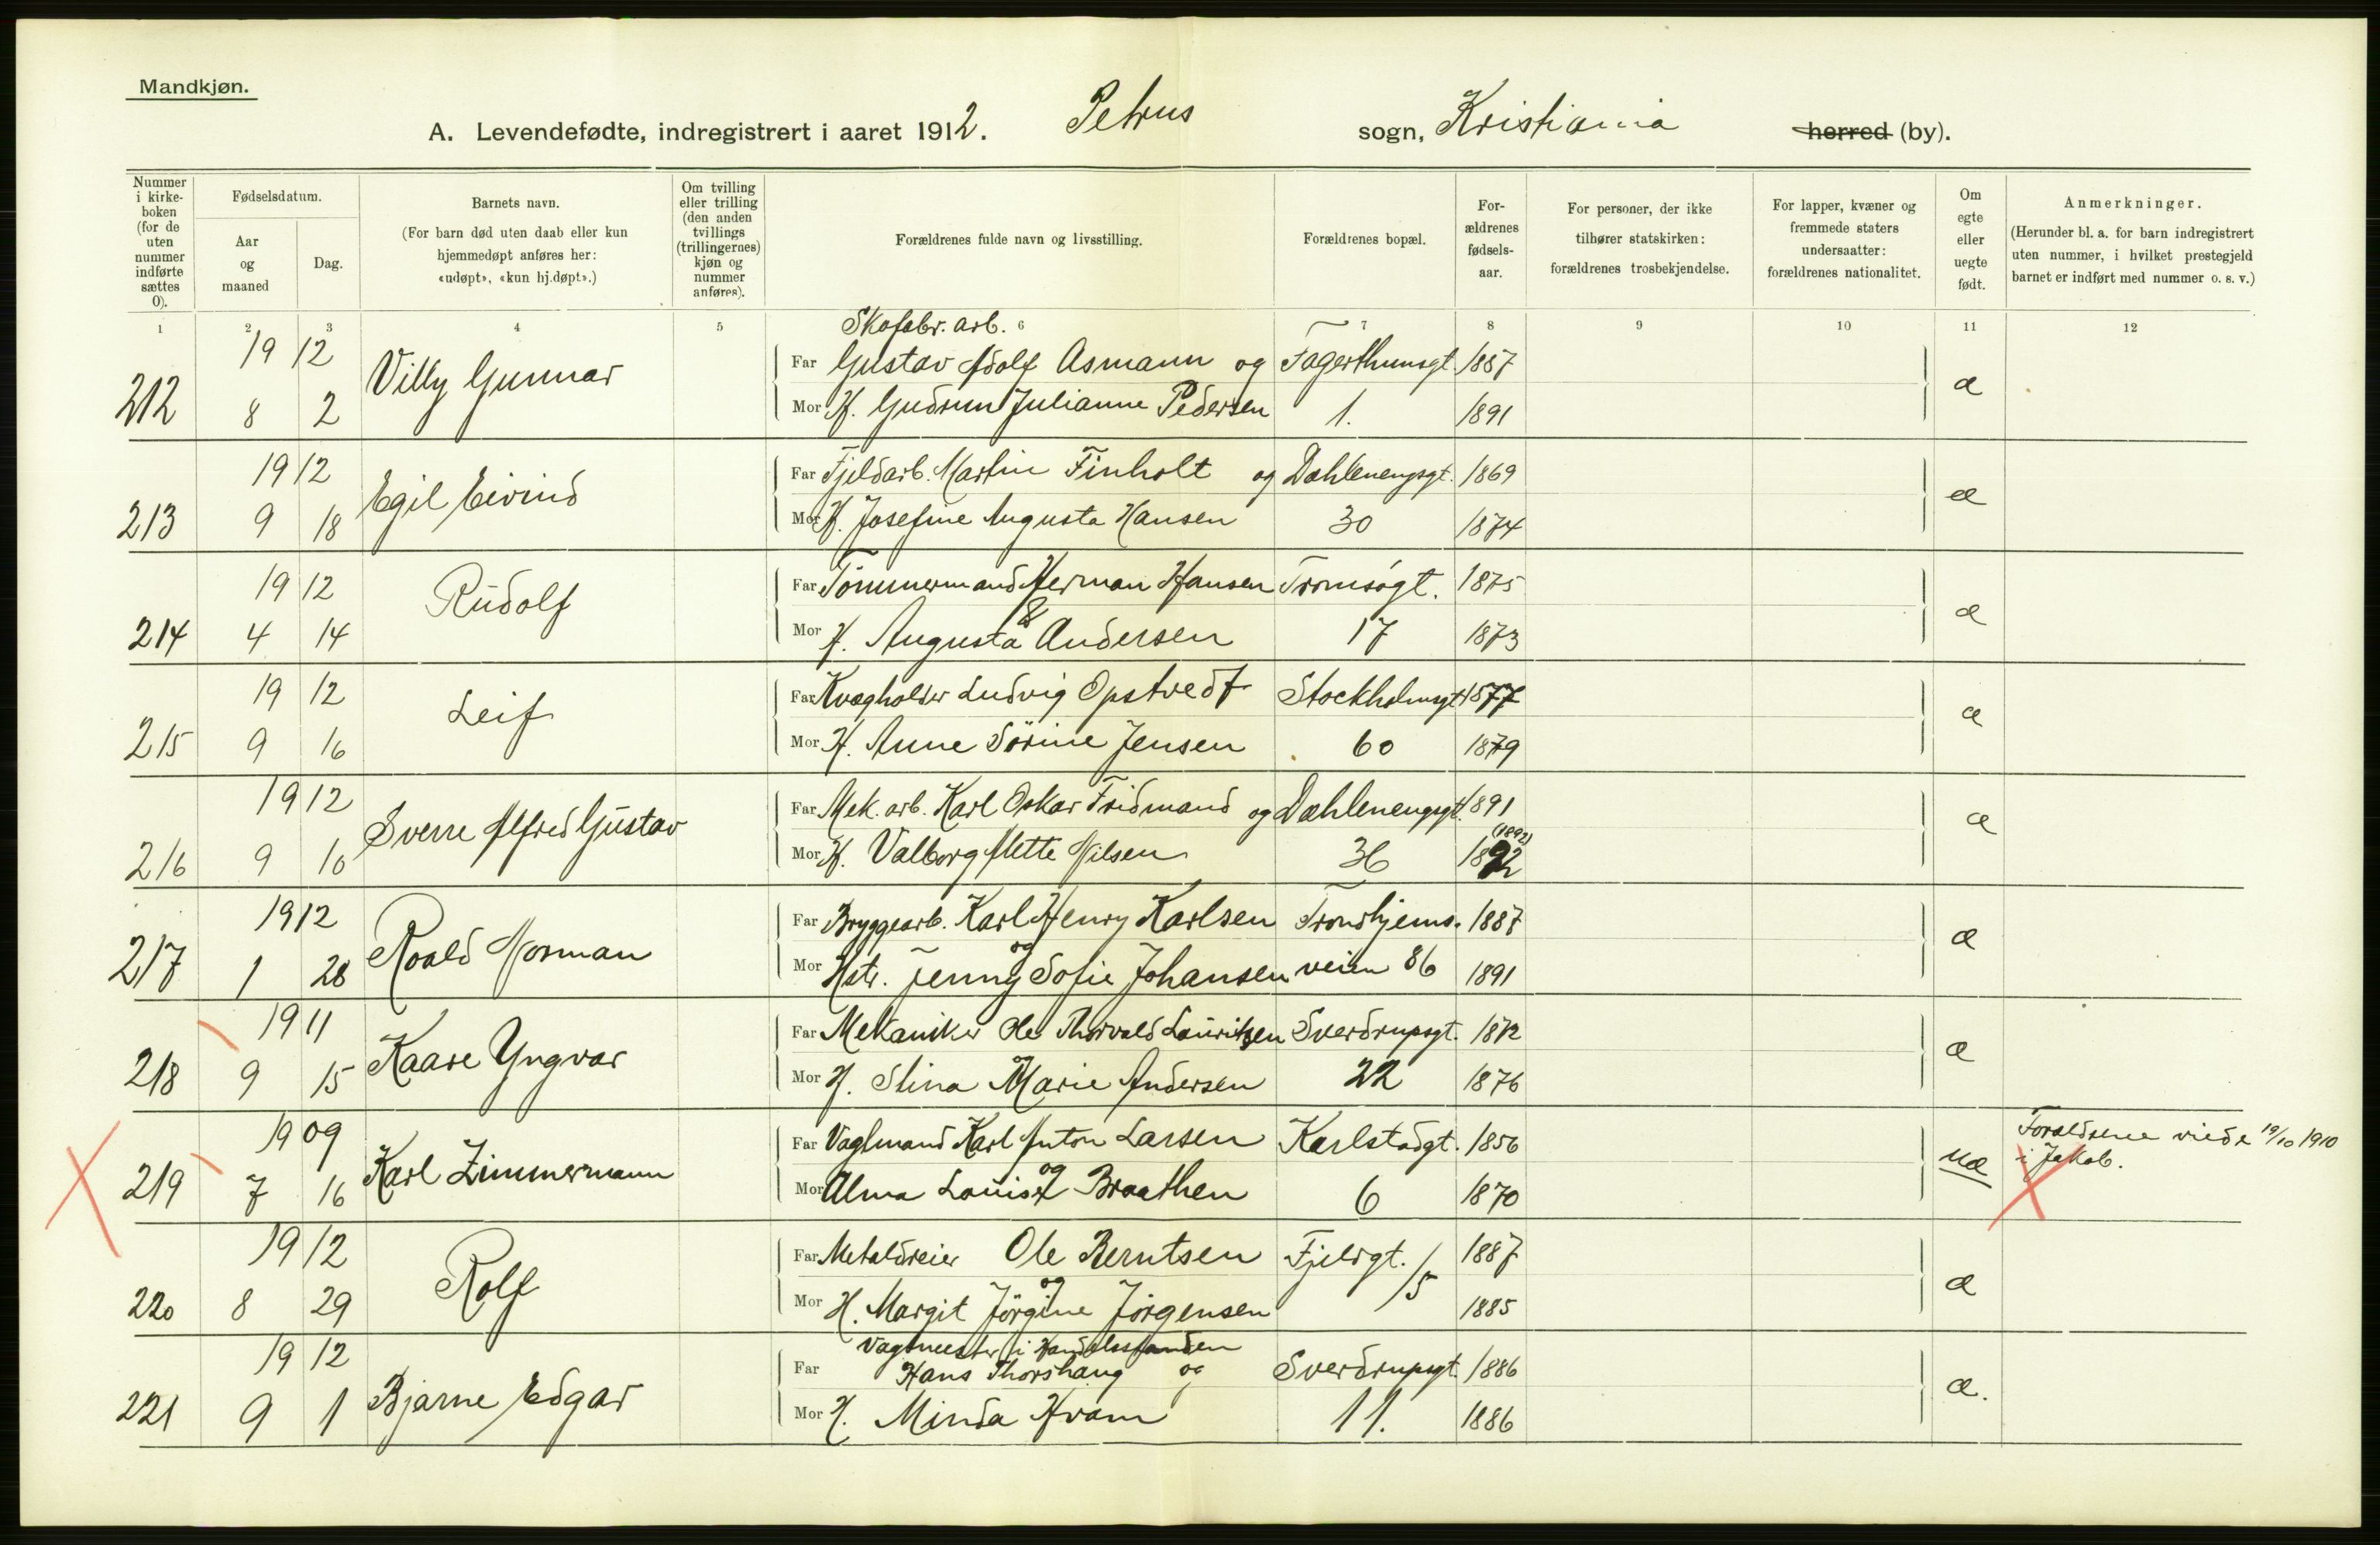 Mandkjøn.
A. Levendefødte, indregistrert i aaret 1912. Petrus sogn, Kristiania herred (by).
Nummer i kirke-boken (for de uten nummer indførte sættes 0).
Fødselsdatum.
Aar og maaned
Dag.
Barnets navn.
(For barn død uten daab eller kun hjemmedøpt anføres her: «udøpt», «kun hj.døpt».)
Om tvilling eller trilling (den anden tvillings (trillingernes) kjøn og nummer anføres).
Forældrenes fulde navn og livsstilling.
Forældrenes bopæl.
For-ældrenes fødsels-aar.
For personer, der ikke tilhører statskirken: forældrenes trosbekjendelse.
For lapper, kvæner og fremmede staters undersaatter: forældrenes nationalitet.
Om egte eller uegte født.
Anmerkninger.
(Herunder bl. a. for barn indregistrert uten nummer, i hvilket prestegjeld barnet er indført med nummer o. s. v.)
1 2 3 4 5 6 7 8 9 10 11 12
Skofabr. arb.
19 12 Villy Gunnar Far Gustav Adolf Asmann og Fagerthunsgt. 1887
212 8 2 Mor H. Gudrun Julianne Pedersen 1. 1891 æ
19 12 Egil Eivind Far Fjeldarb. Martin Finholt og Dæhlenengsgt. 1869
213 9 18 Mor H. Josefine Augusta Hansen 30 1874 æ
19 12 Rudolf Far Tömmermand Herman Hansen Tromsøgt. 1875
214 4 14 Mor H. Augusta & Andersen 17 1873 æ
19 12 Leif Far Kvægholder Ludvig Opstvedt Stockholmsgt 1877
215 9 16 Mor H. Anne Sörine Jensen 60 1879 æ
19 12 Sverre Alfred Gustav Far Mek. arb. Karl Oskar Fridmand og Dæhlenengsgt. 1891
(1892)
216 9 10 Mor H. Valborg Mette Nilsen 36 1892 æ
19 12 Roald Norman Far Bryggearb. Karl Henry Karlsen Trondhjems- 1887
217 1 28 Mor Hstr. Jenny og Sofie Johansen veien 86 1891 æ
19 11 Kaare Yngvar Far Mekaniker Ole Thorvald Lauritzen Sverdrupsgt. 1872
218 9 15 Mor H. Stina og Marie Andersen 22 1876 æ
19 09 Karl Zimmermann Far Vagtmand Karl Anton Larsen Karlstadgt. 1856 Forældrene viede 19/10 1910
219 7 16 Mor Alma Louise og Braathen 6 1870 uæ i Jakob.
19 12 Rolf Far Metaldreier Ole Berntsen Fjeldgt. 1887
220 8 29 Mor H. Margit og Jörgine Jörgensen /5 1885 æ
Vagtmester i Handelsstanden
19 12 Bjarne Edgar Far Hans Thorshaug og Sverdrupsgt. 1886
221 9 1 Mor H. Minda Kvam 11. 1886 æ.